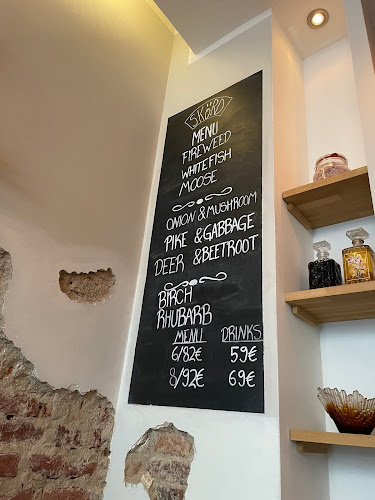 SKÖRD
MENU
FIREWEED
WHITEFISH
MOOSE
ONION & MUSHROOM
PIKE & GABBAGE
DEER & BEETROOT
BIRCH
RHUBARB
MENU DRINKS
6/82€ 59€
8/92€ 69€